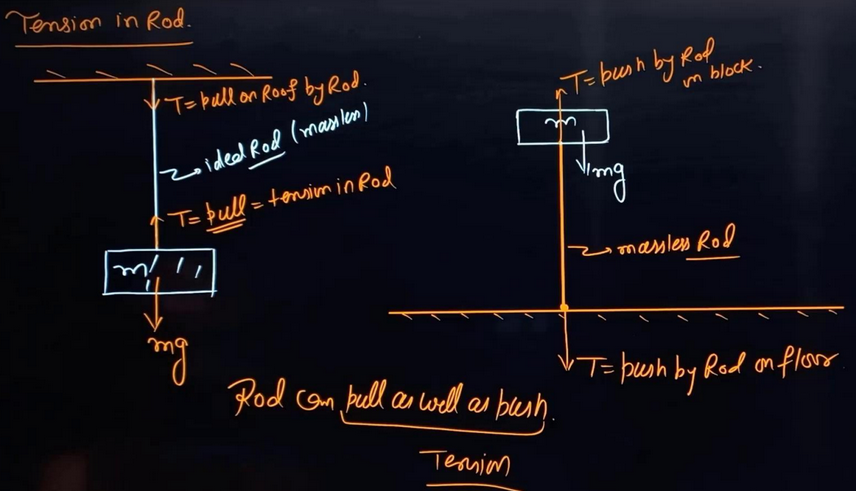 Tension in Rod.
T = pull on Roof by Rod.
ideal Rod (massless)
T = pull = tension in Rod
m
mg
T = push by Rod
on block.
m
mg
massless Rod
T = push by Rod on floor
Rod can pull as well as push.
Tension